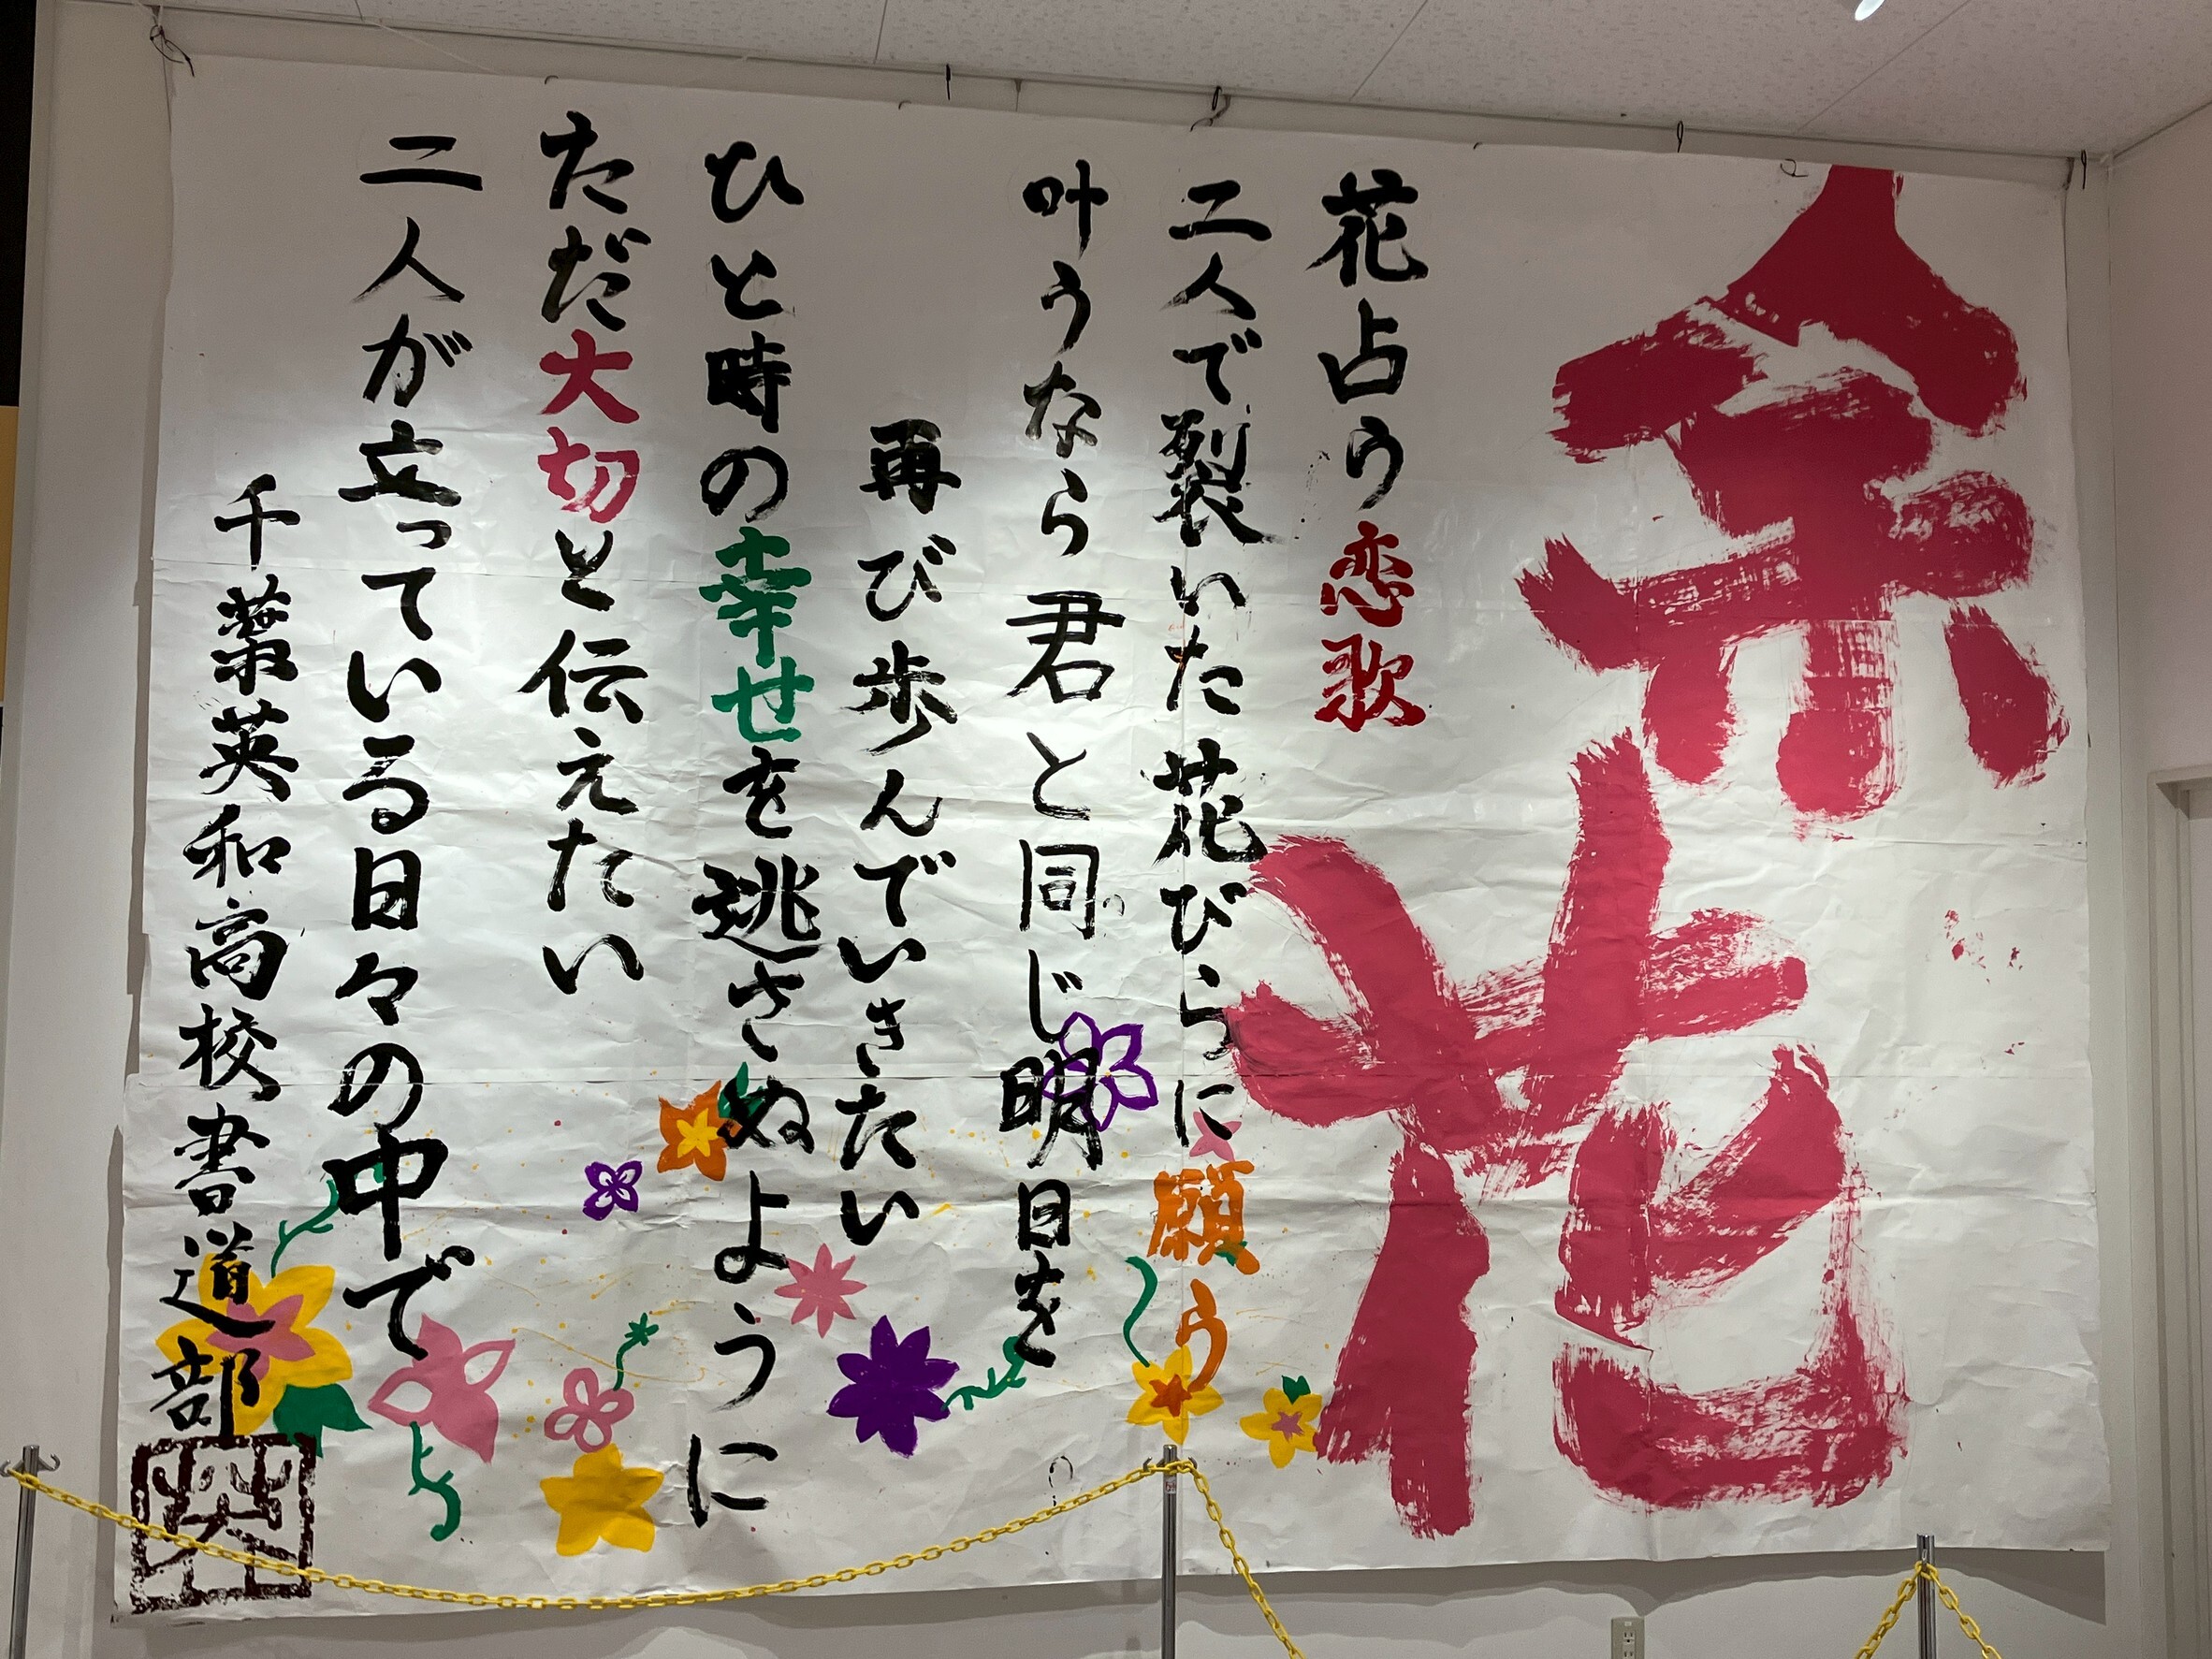 余花
花占う恋歌
二人で裂いた花びらに願う
叶うなら君と同じ明日を
再び歩んでいきたい
ひと時の幸せを逃さぬように
ただ大切と伝えたい
二人が立っている日々の中で
千葉英和高校書道部